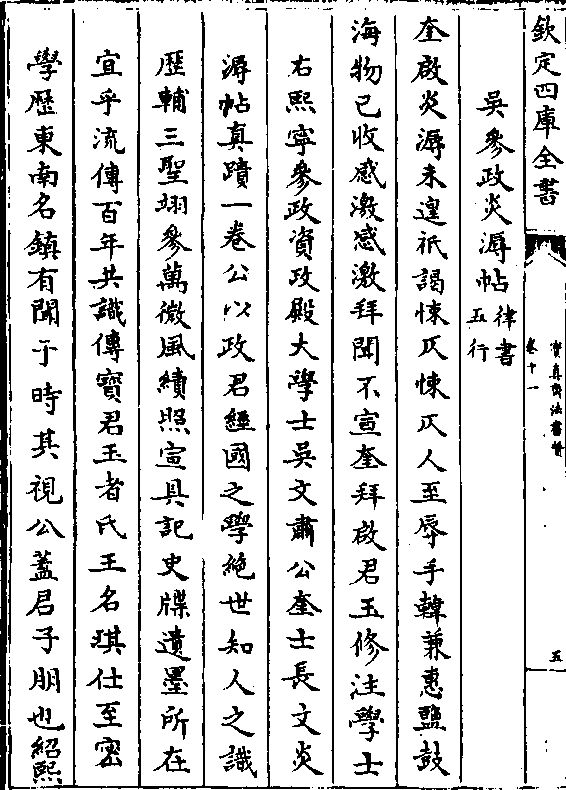 欽定四庫全書
寶真齋法書贊
卷十一
五
吳參政炎溽帖律書五行
奎啟炎溽未遑祇謁悚仄悚仄人至辱手翰兼惠鹽豉
海物已收感激感激拜聞不宣奎拜啟君玉修注學士
右熙寧參政資政殿大學士吳文肅公奎士長文炎
溽帖真蹟一卷公以政君經國之學絶世知人之識
歷輔三聖翊參萬微風績照宣具記史牒遺墨所在
宜乎流傳百年共識傳寶君玉者氏王名琪仕至密
學歷東南名鎮有聞于時其視公蓋君子朋也紹熙